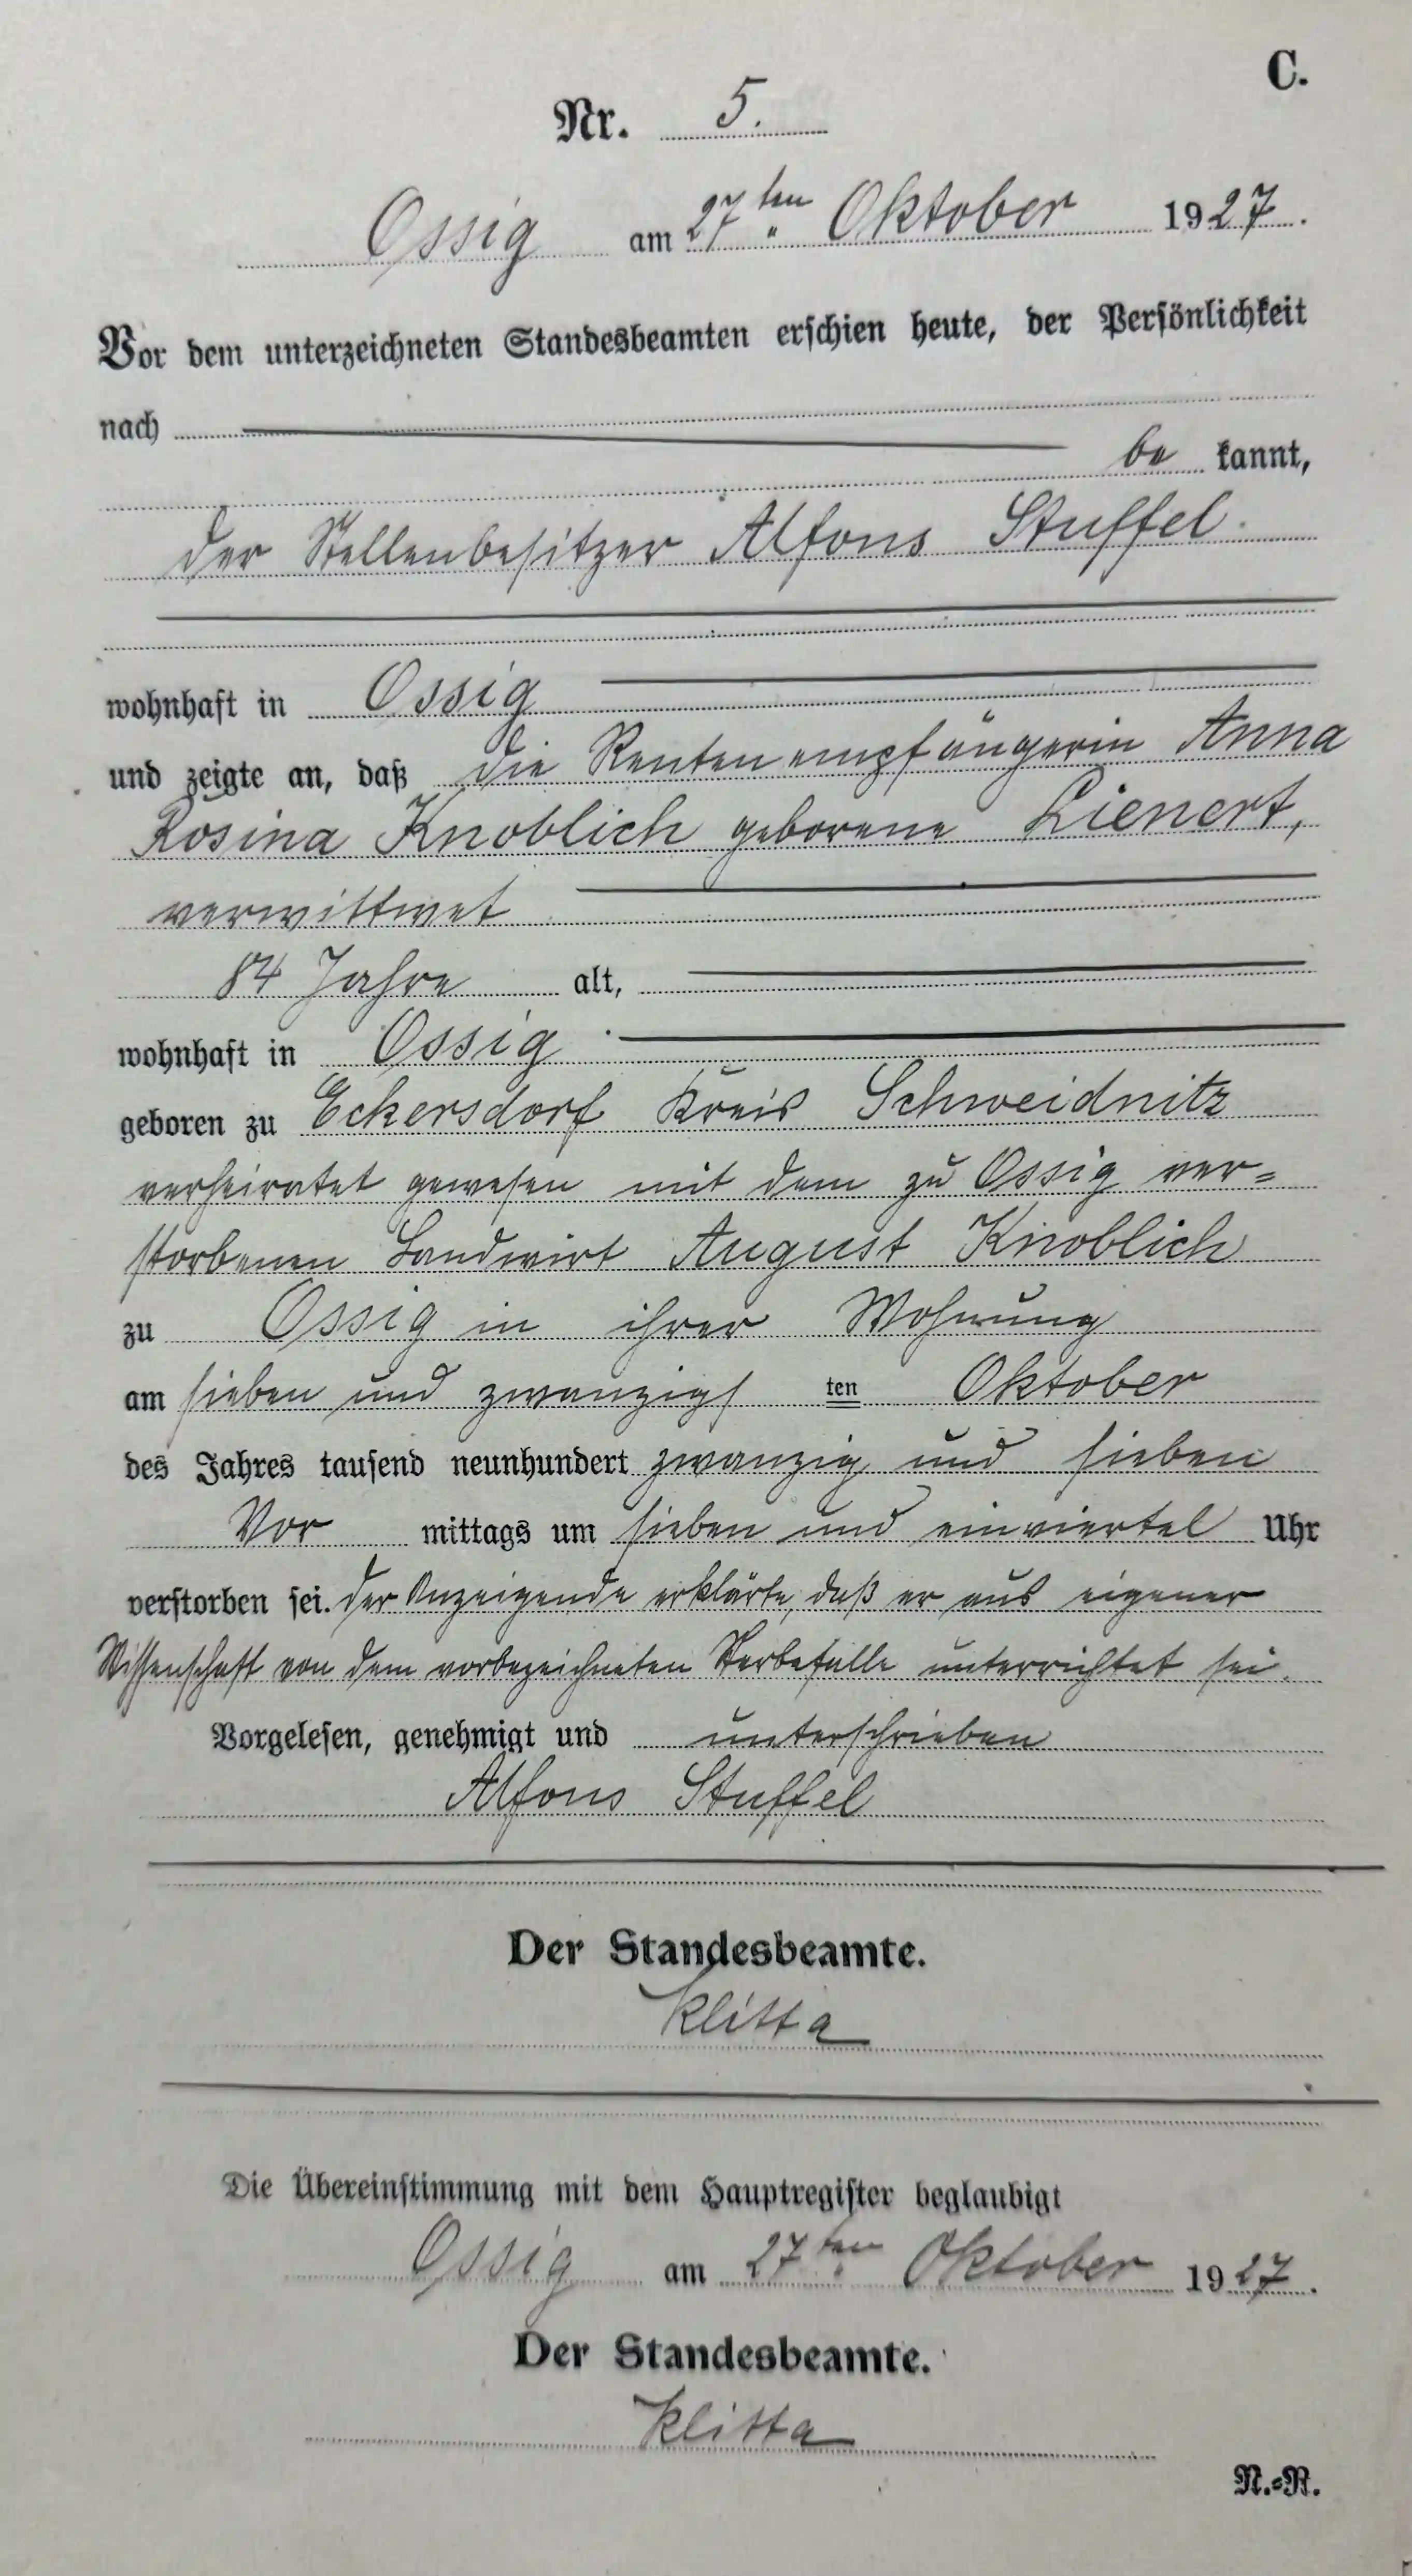 C.
Nr. 5.
Ossig am 27ten Oktober 1927.
Vor dem unterzeichneten Standesbeamten erschien heute, der Persönlichkeit
nach
be kannt,
der Stellenbesitzer Alfons Stuffel.
wohnhaft in Ossig
und zeigte an, daß die Rentenempfängerin Anna
Rosina Knoblich geborene Lienert,
verwittwet
84 Jahre alt,
wohnhaft in Ossig
geboren zu Eckersdorf Kreis Schweidnitz
verheiratet gewesen mit dem zu Ossig ver=
storbenen Landwirt August Knoblich
zu Ossig in ihrer Wohnung
am sieben und zwanzigs ten Oktober
des Jahres tausend neunhundert zwanzig und sieben
Vor mittags um sieben und einviertel Uhr
verstorben sei. Der Anzeigende erklärte, daß er aus eigener
Wissenschaft von dem vorbezeichneten Sterbefalle unterrichtet sei.
Vorgelesen, genehmigt und unterschrieben
Alfons Stuffel
Der Standesbeamte.
Klitta
Die Übereinstimmung mit dem Hauptregister beglaubigt
Ossig am 27ten Oktober 1927.
Der Standesbeamte.
Klitta
N.=R.